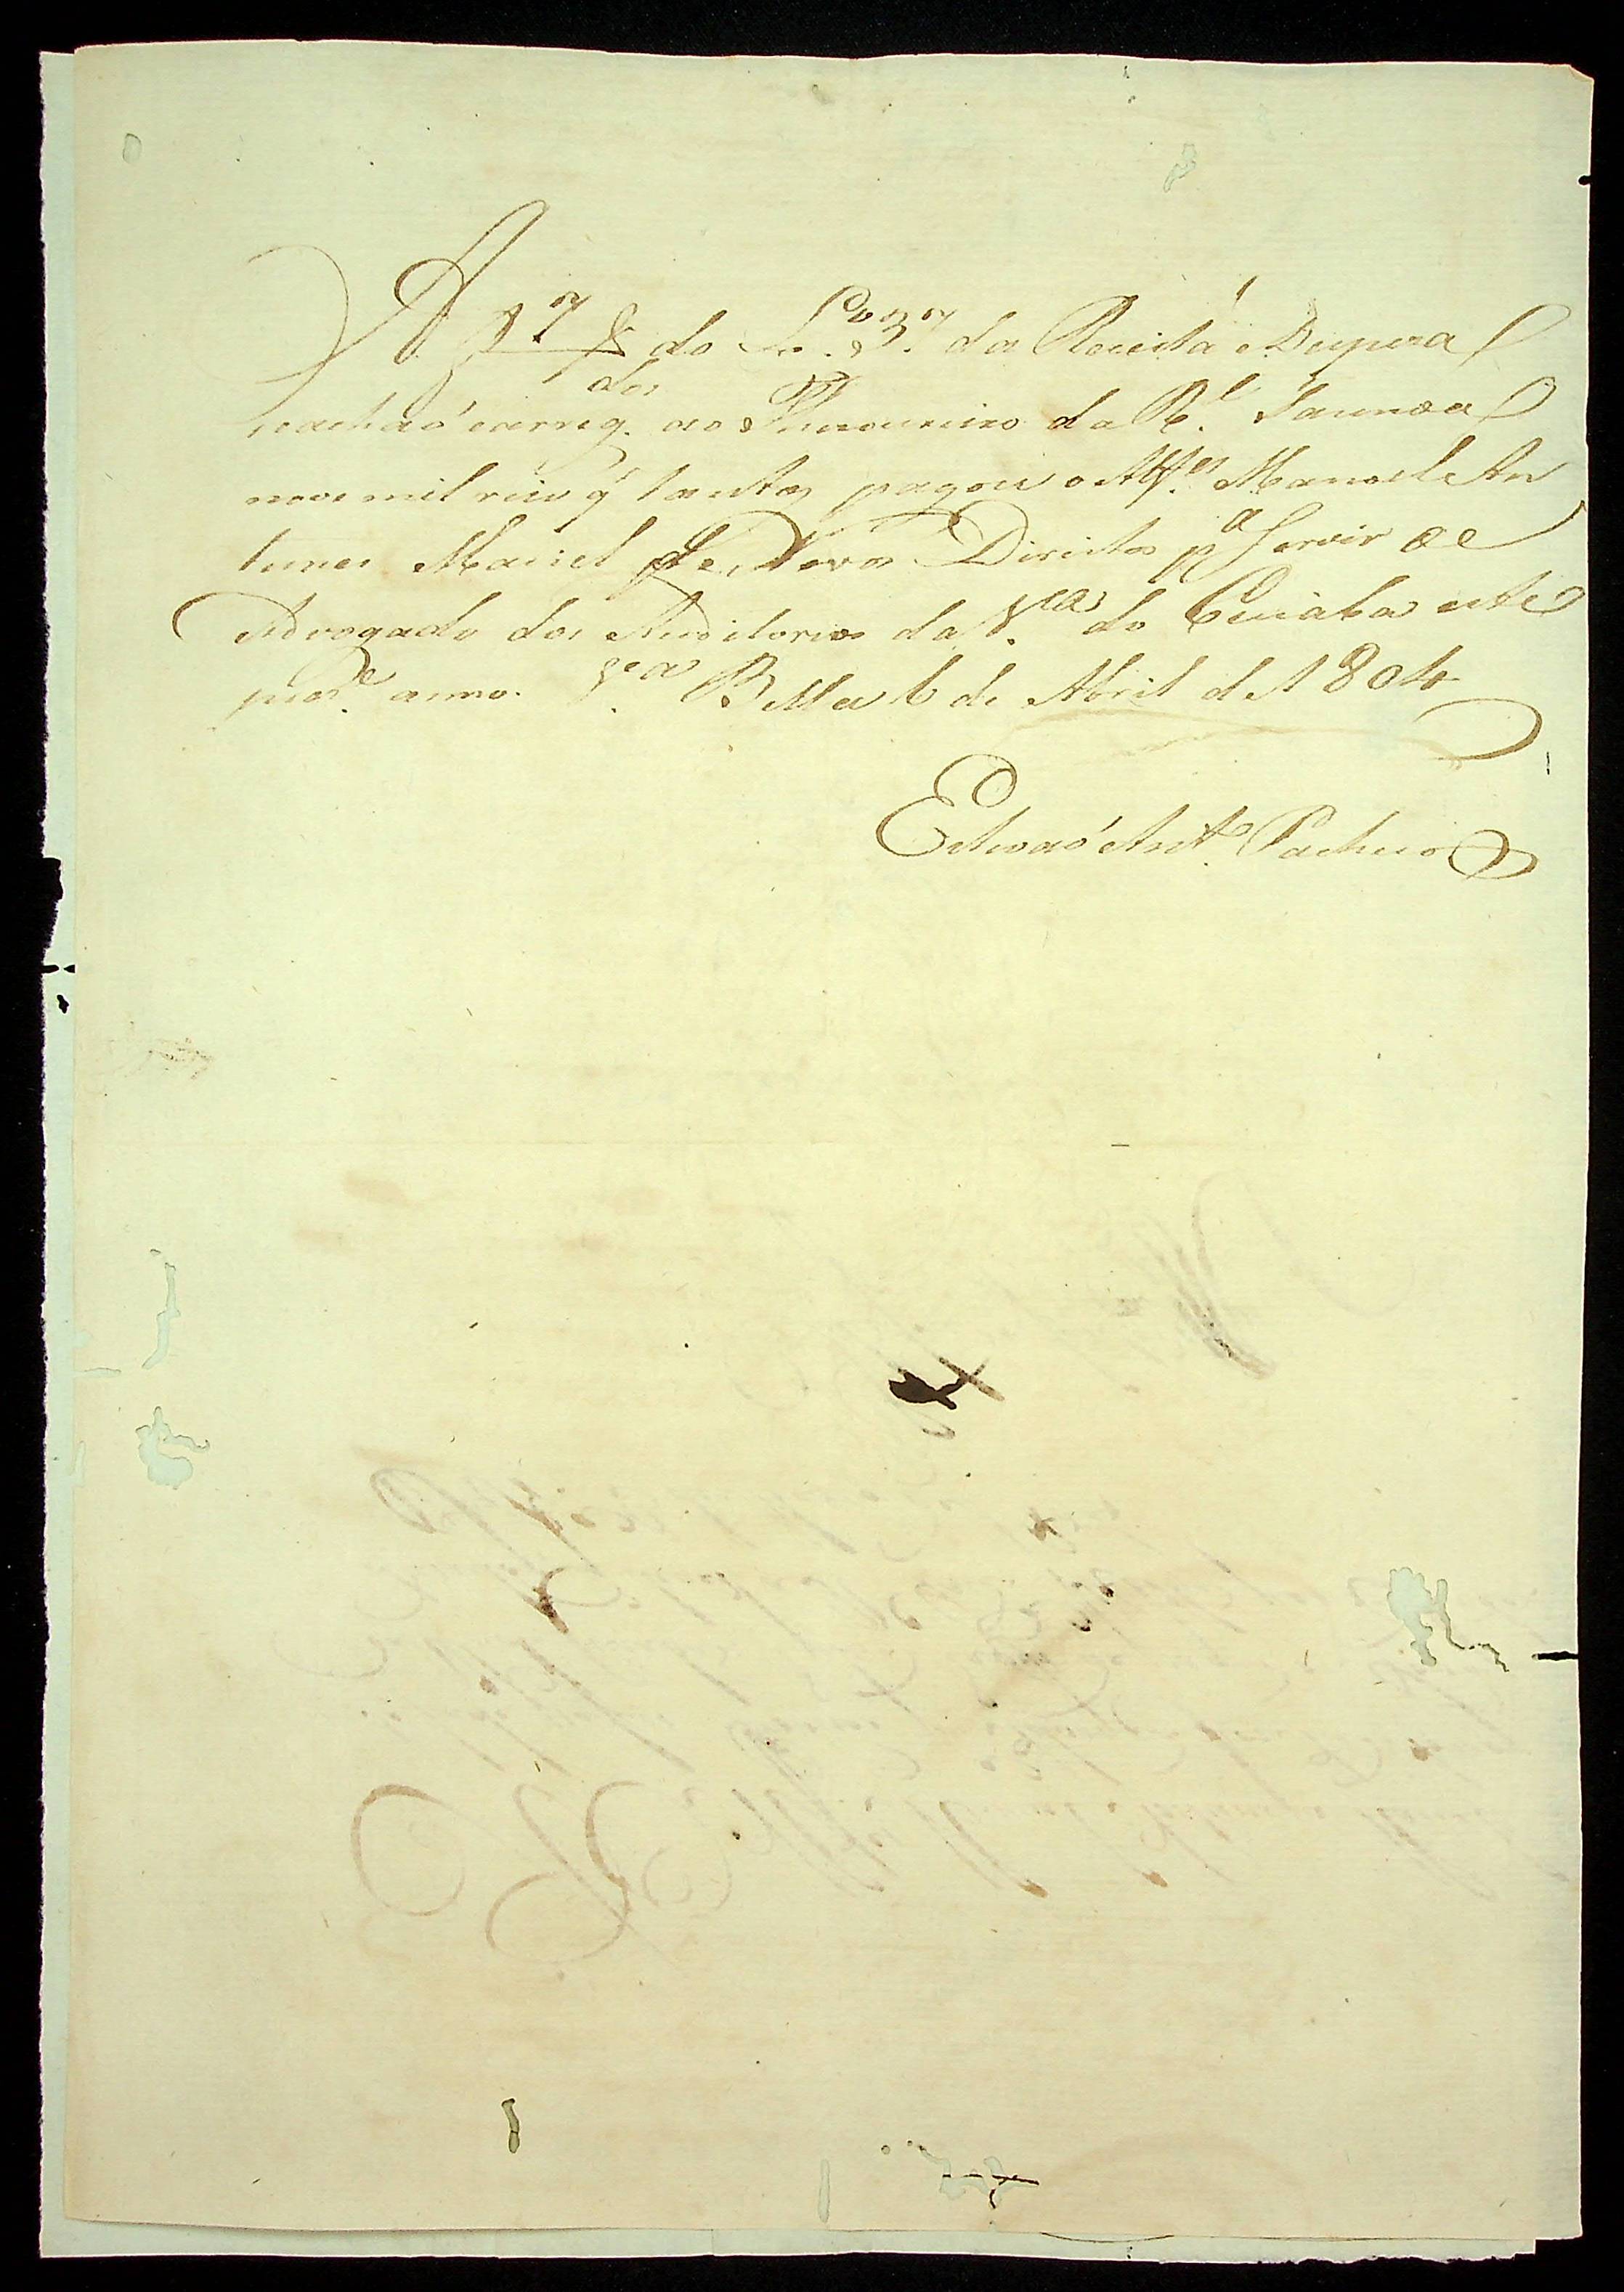 A f 7 do L.º 3.º da Receita e Despeza
se achaõ carreg.dos ao Thezoureiro da R.l Fazenda
nove mil reis q' tantos pagou o Alf.es Manoel An
tunes Maciel de Novos Direitos p.a Servir de
Advogado dos Auditorios da V.la do Cuiaba este
prez.e anno. V.a Bella 6 de Abril de 1804
Estevaõ Ant.o Pacheco